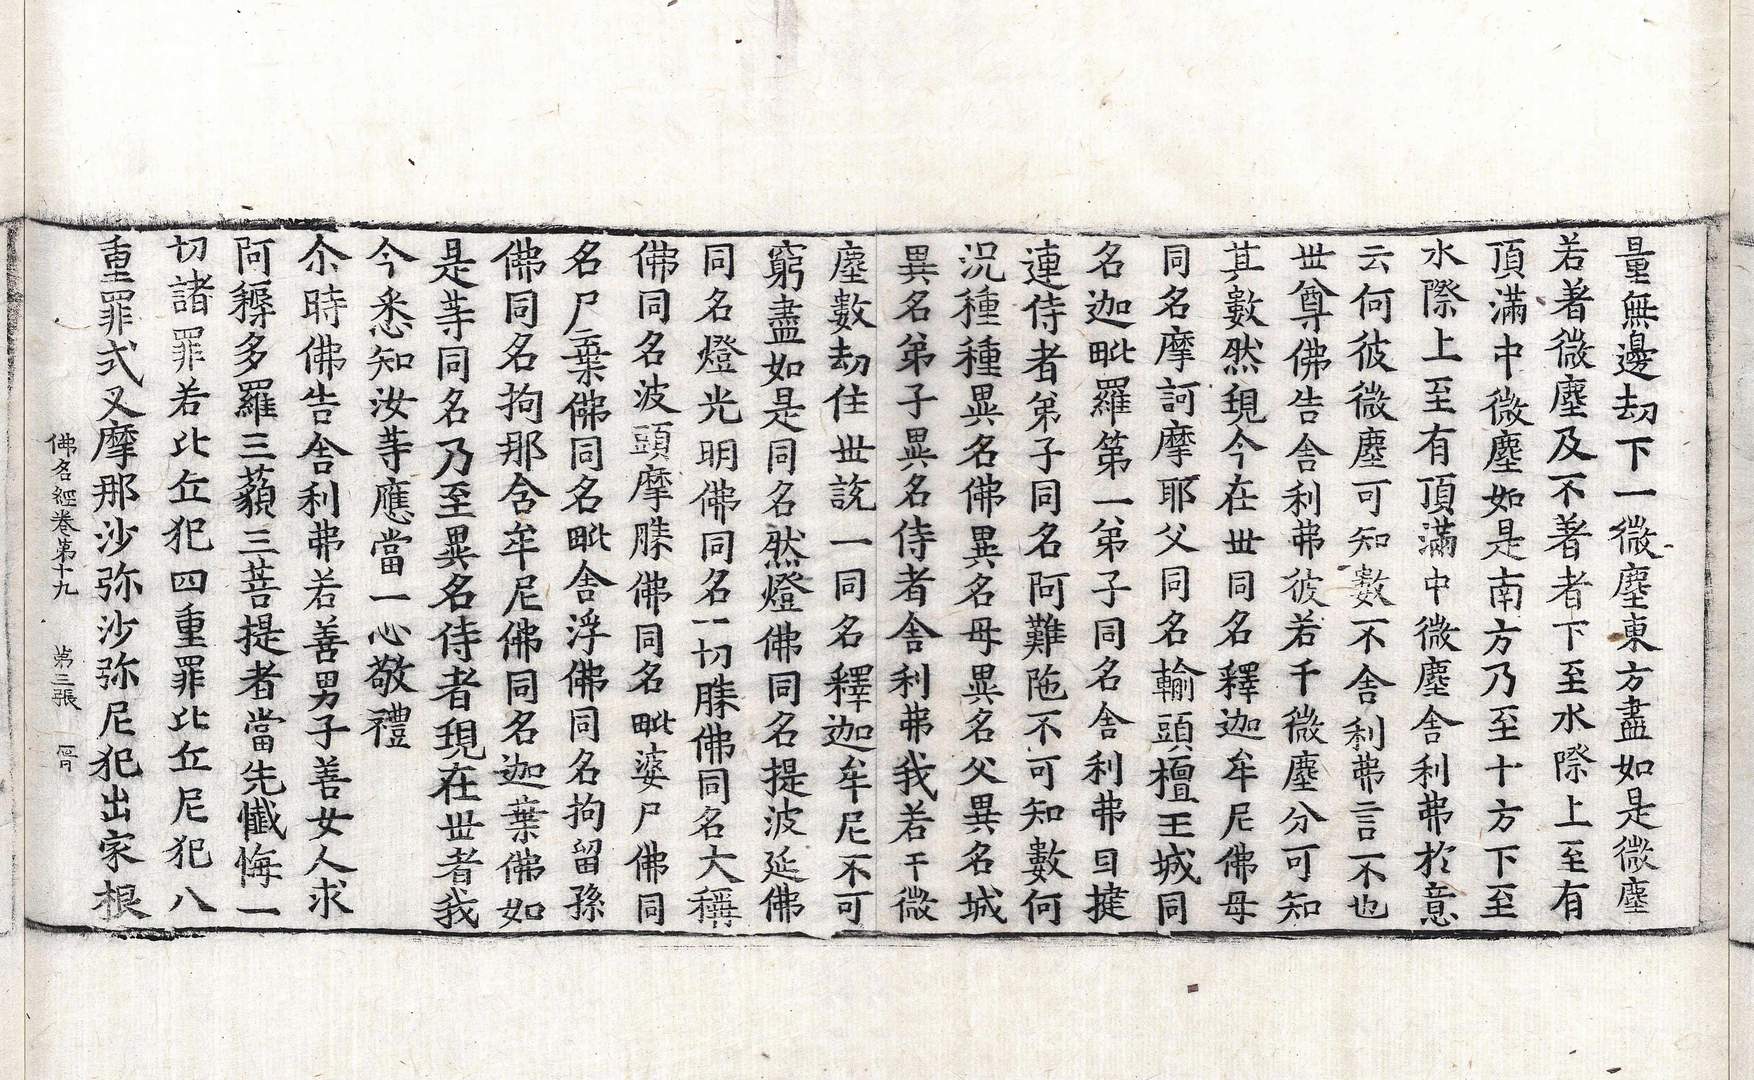 量無邊劫下一微塵東方盡如是微塵
若著微塵及不著者下至水際上至有
頂滿中微塵如是南方乃至十方下至
水際上至有頂滿中微塵舍利弗於意
云何彼微塵可知數不舍利弗言不也
世尊佛告舍利弗彼若千微塵分可知
其數然現今在世同名釋迦牟尼佛母
同名摩訶摩耶父同名輸頭檀王城同
名迦毗羅第一弟子同名舍利弗目揵
連侍者弟子同名阿難陁不可知數何
況種種異名佛異名母異名父異名城
異名弟子異名侍者舍利弗我若干微
塵數劫住世說一同名釋迦牟尼不可
窮盡如是同名然燈佛同名提波延佛
同名燈光明佛同名一切勝佛同名大稱
佛同名波頭摩勝佛同名毗婆尸佛同
名尸棄佛同名毗舍浮佛同名拘留孫
佛同名拘那含牟尼佛同名迦葉佛如
是等同名乃至異名侍者現在世者我
今悉知汝等應當一心敬禮
尒時佛告舍利弗若善男子善女人求
阿耨多羅三藐三菩提者當先懺悔一
切諸罪若比丘犯四重罪比丘尼犯八
重罪式叉摩那沙弥沙弥尼犯出家根
佛名經卷第十九　第三張